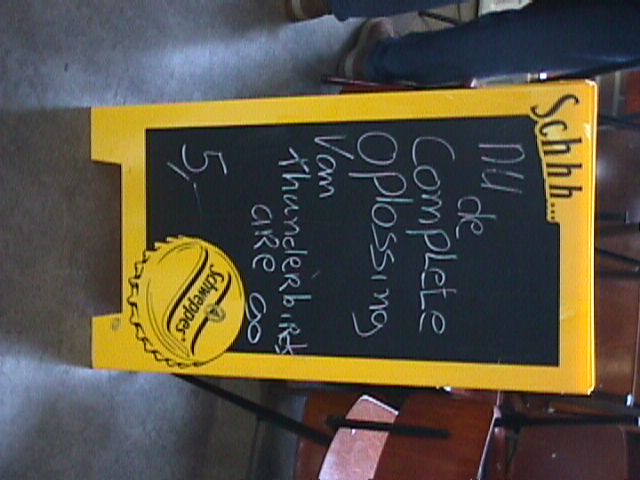 Schhh....
nu
de
COMPLETE
OPlossing
Van
thunderbirds
are go
5,-
Schweppes